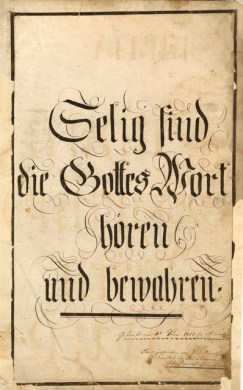 Selig sind
die Gottes Wort
hören
und bewahren.